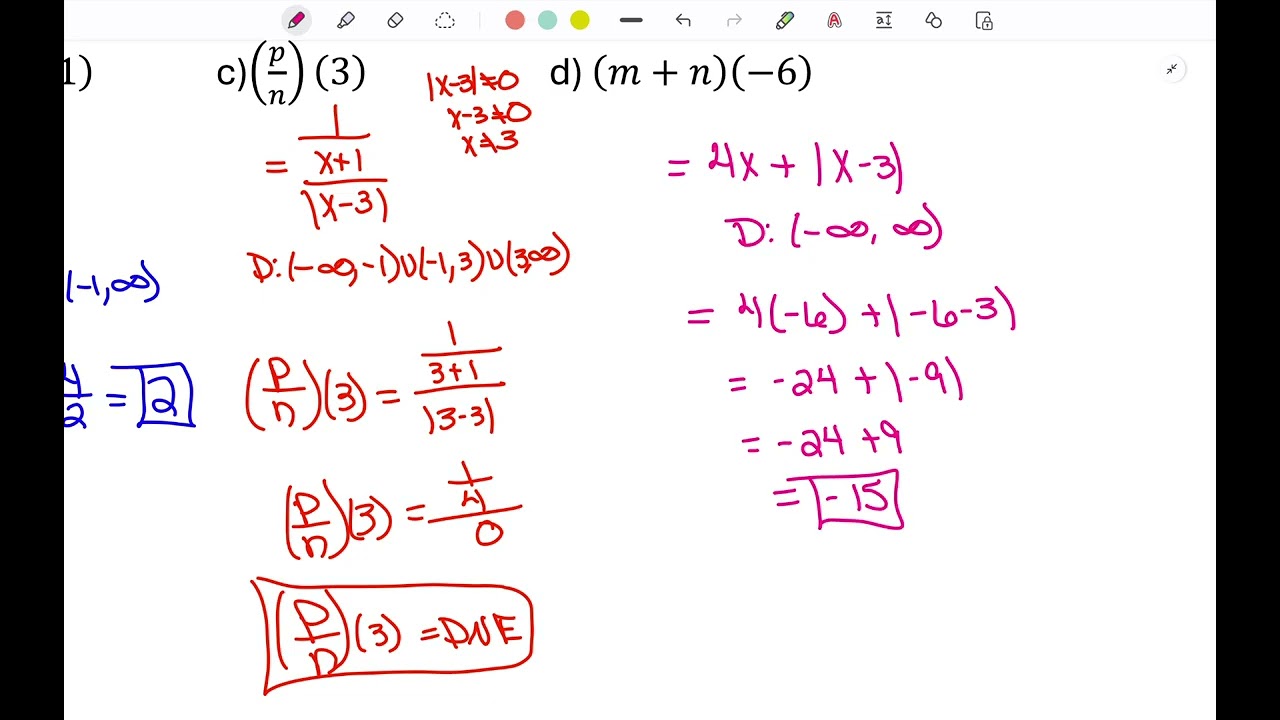 1)
(-1,∞)
4/2 = 2
c) (p/n) (3)
|x-3| ≠ 0
x-3 ≠ 0
x ≠ 3
= (1/(x+1))/|x-3|
D: (-∞,-1)∪(-1,3)∪(3,∞)
(p/n)(3) = (1/(3+1))/|3-3|
(p/n)(3) = (1/4)/0
(p/n)(3) = DNE
d) (m + n)(−6)
= 4x + |x-3|
D: (-∞, ∞)
= 4(-6) + |-6-3|
= -24 + |-9|
= -24 + 9
= -15